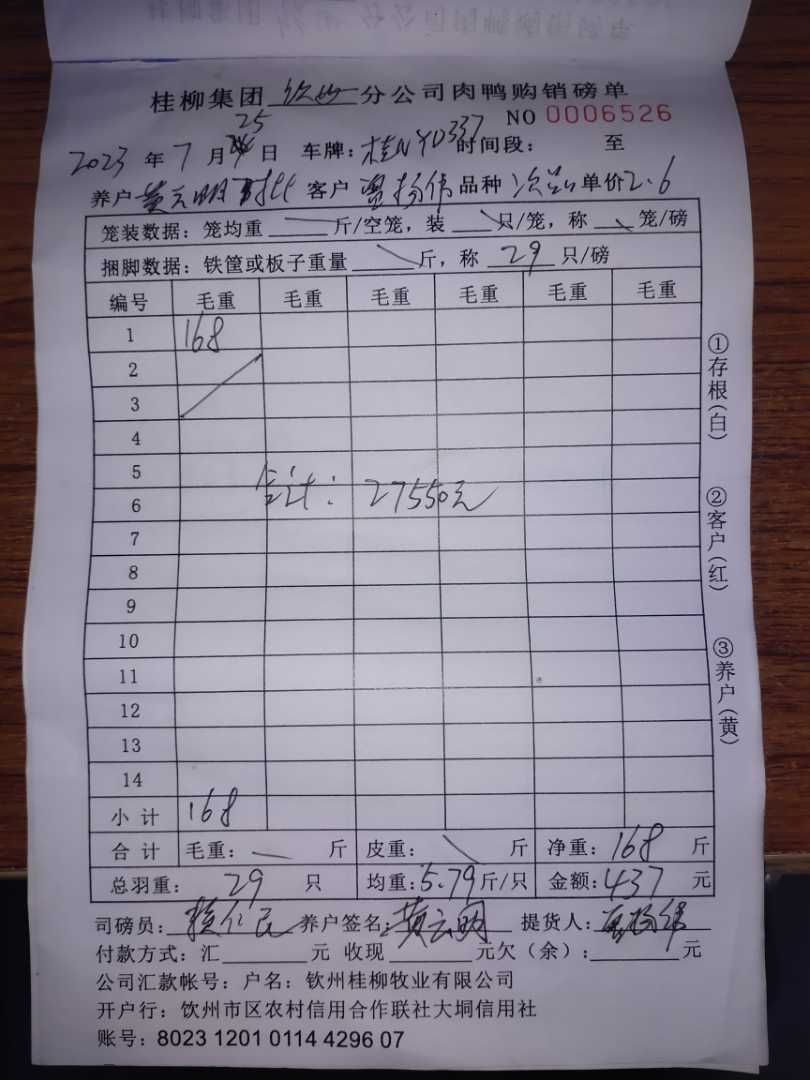 桂柳集团 钦州 分公司肉鸭购销磅单
NO 0006526
2023 年 7 月 25 日 车牌: 桂N YD337 时间段: 至
养户 黄云明 客户 杨伟 品种 次品 单价 2.6
笼装数据: 笼均重 斤/空笼, 装 只/笼, 称 笼/磅
捆脚数据: 铁筐或板子重量 斤, 称 29 只/磅
编号 毛重 毛重 毛重 毛重 毛重 毛重
1 168
2
3
4
5
合计: 27550元
6
7
8
9
10
11
12
13
14
小计 168
合计 毛重: 斤 皮重: 斤 净重: 168 斤
总羽重: 29 只 均重: 5.79 斤/只 金额: 437 元
司磅员: 仁民 养户签名: 黄云明 提货人: 杨伟
付款方式: 汇 元 收现 元欠(余): 元
公司汇款帐号: 户名: 钦州桂柳牧业有限公司
开户行: 饮州市区农村信用合作联社大垌信用社
账号: 8023 1201 0114 4296 07
①存根(白)
②客户(红)
③养户(黄)